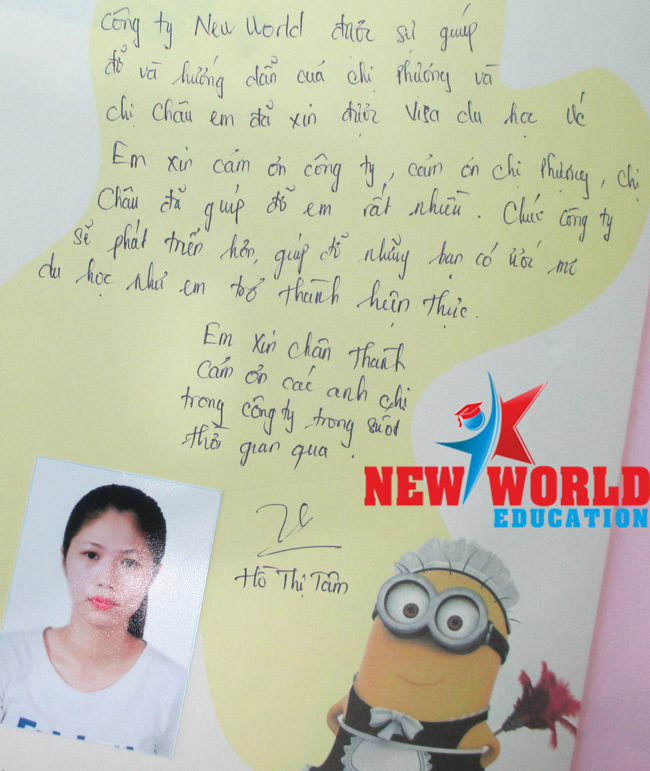 Công ty New World được sự giúp
đỡ và hướng dẫn của chị Phương và
chị Châu em đã xin được Visa du học Úc
Em xin cám ơn công ty, cám ơn chị Phương, chị
Châu đã giúp đỡ em rất nhiều. Chúc công ty
sẽ phát triển hơn, giúp đỡ những bạn có ước mơ
du học như em trở thành hiện thực.
Em xin chân thành
cám ơn các anh chị
trong công ty trong suốt
thời gian qua.
NEW WORLD
EDUCATION
Hồ Thị Tâm